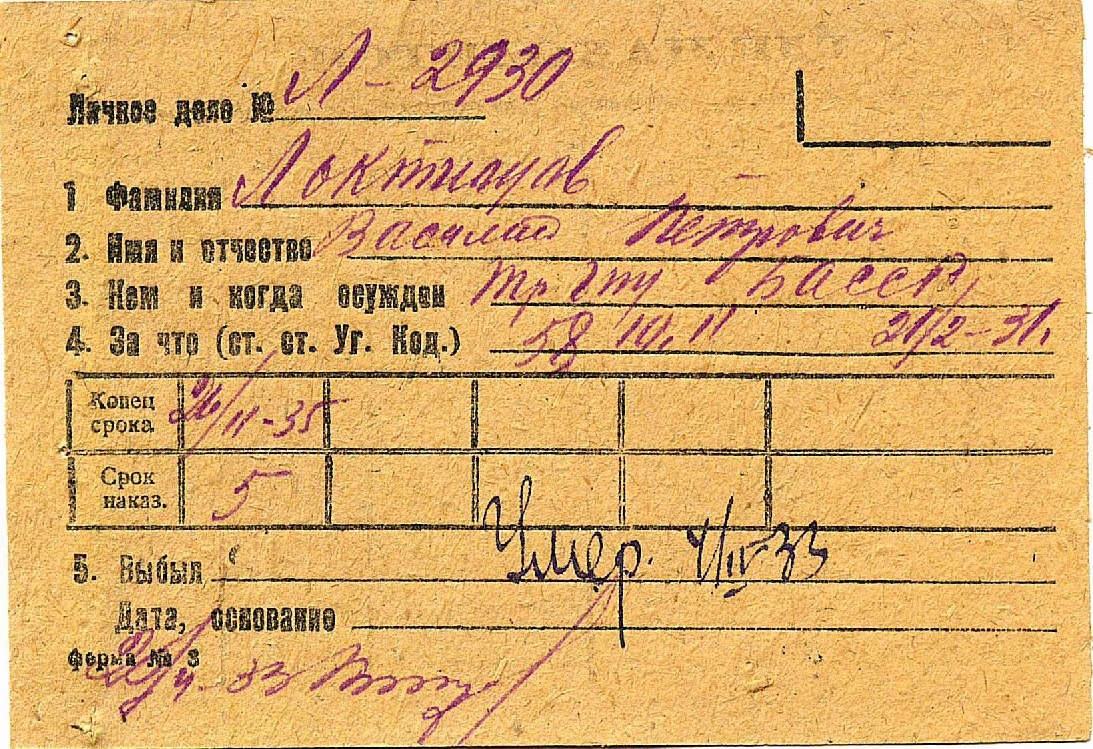 Личное дело № Л-2930
1 Фамилия Локтионов
2. Имя и отчество Василий Петрович
3. Кем и когда осужден тр. гпу БАССР,
4. За что (ст. ст. Уг. Код.) 58 10, 11 21/2-31.
Конец срока 26/11-35
Срок наказ. 5
5. Выбыл Умер. 4/IV-33
Дата, основание
форма № 3